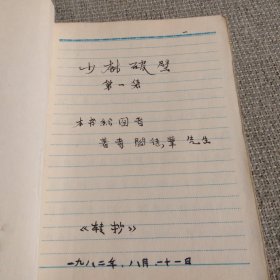 少林破壁
第一集
本书绘图者
著者 顾继堂 先生
《转抄》
一九八二年，八月二十一日